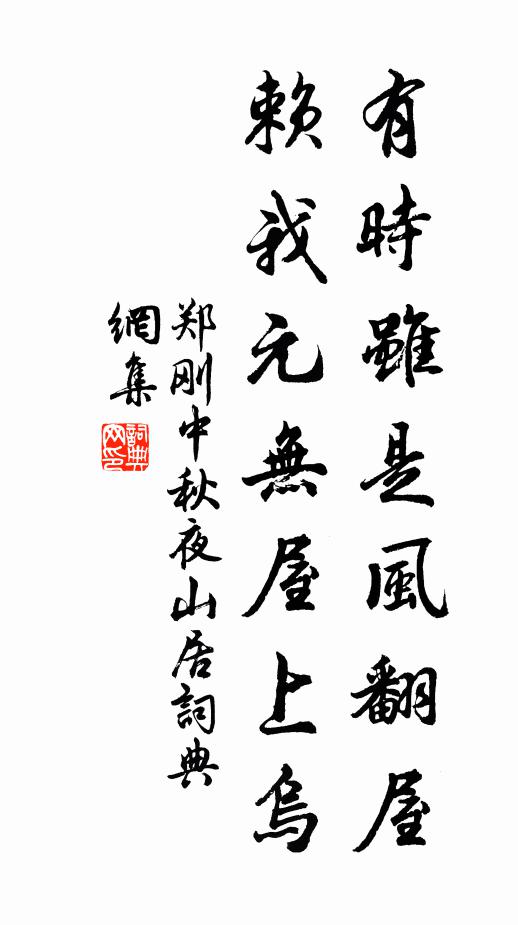 有時雖是風翻屋
賴我元無屋上烏
郑刚中秋夜山居詞典
網集
詞典
网印